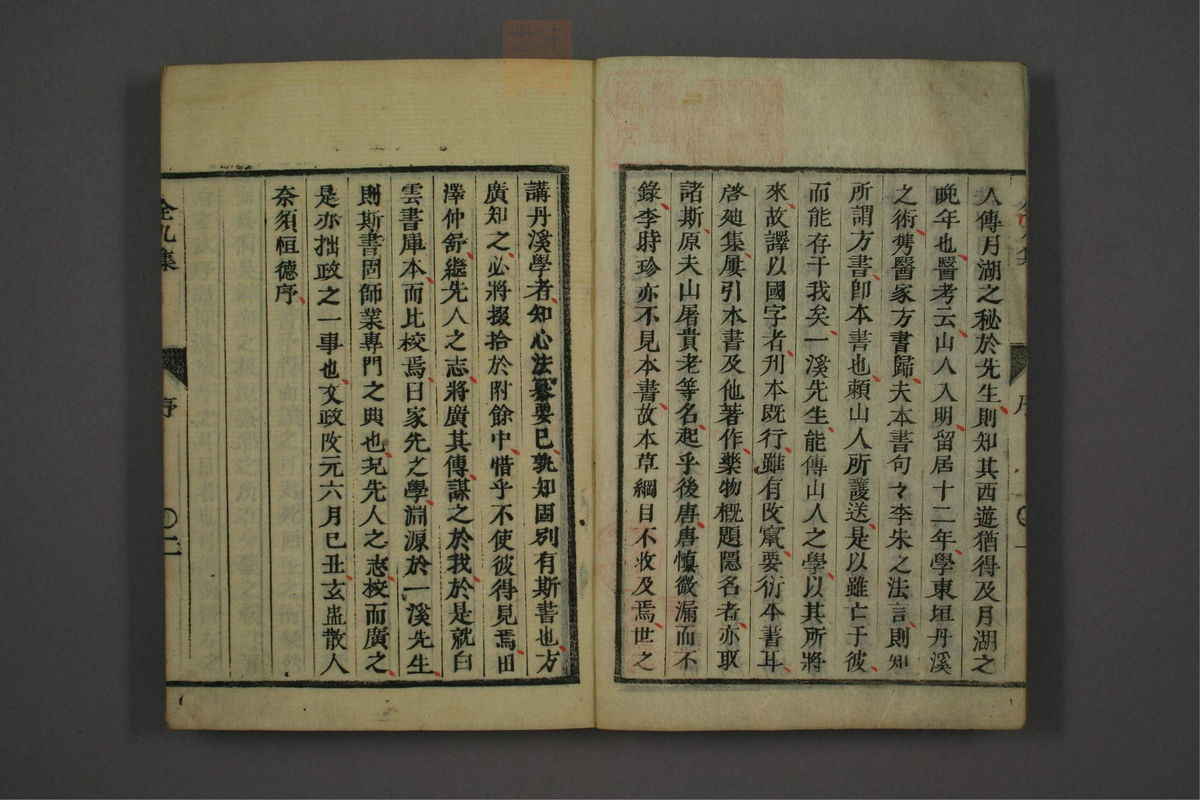 人傳月湖之秘於先生則知其西遊猶得及月湖之
晚年也醫考云山人入明留居十二年學東垣丹溪
之術携醫家方書歸夫本書句々李朱之法言則知
所謂方書卽本書也賴山人所護送是以雖亡于彼
而能存于我矣一溪先生能傳山人之學以其所將
來故譯以國字者刋本既行雖有改竄要衍本書耳
啓廸集屢引本書及他著作藥物概題隱名者亦取
諸斯原夫山屠貴老等名起乎後唐唐愼微漏而不
錄李時珍亦不見本書故本草綱目不收及焉世之
講丹溪學者知心法纂要已孰知固別有斯書也方
廣知之必將掇拾於附餘中惜乎不使彼得見焉田
澤仲舒繼先人之志將廣其傳謀之於我於是就白
雲書庫本而比校焉曰家先之學淵源於一溪先生
則斯書固師業專門之典也况先人之志校而廣之
是亦拙政之一事也文政改元六月巳丑玄盅散人
奈須恒德序
全九集
序
二